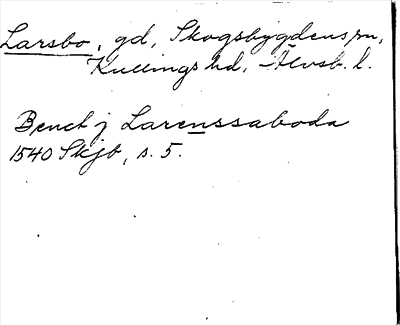 Larsbo, gd, Skogsbygdens sn,
Kullings hd, Älvsb. l.
Benct j Larenssaboda
1540 Skjb, s. 5.